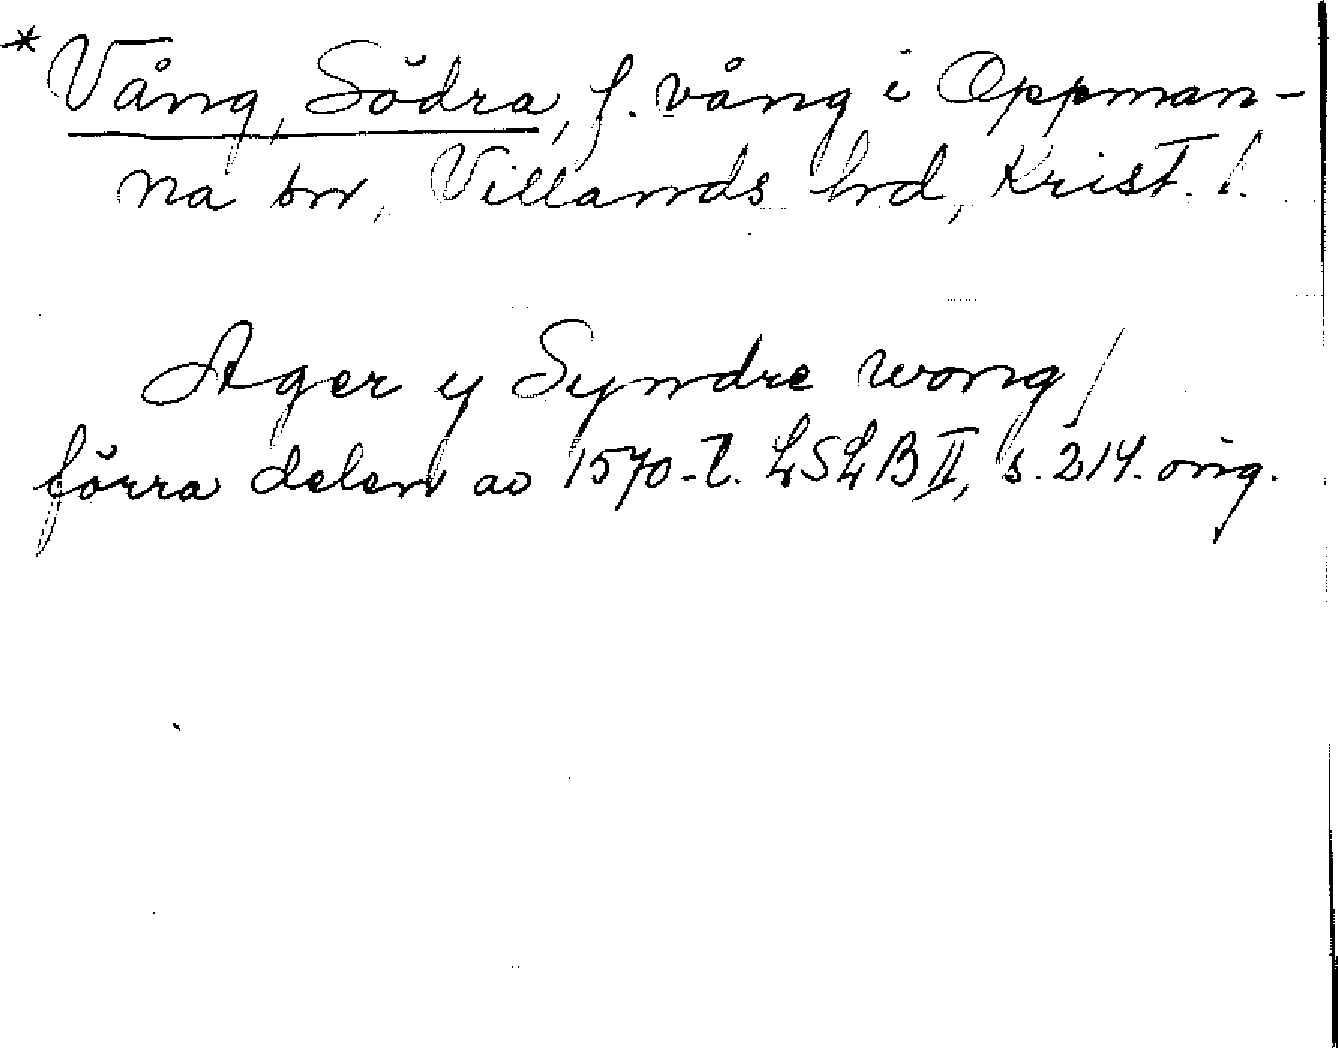 *Vång, Södra, f. vång i Oppman-
na sn, Villands hd, Krist. l.
Ager y Syndre wong /
förra delen av 1570-t. LSLB II, s. 214. orig.